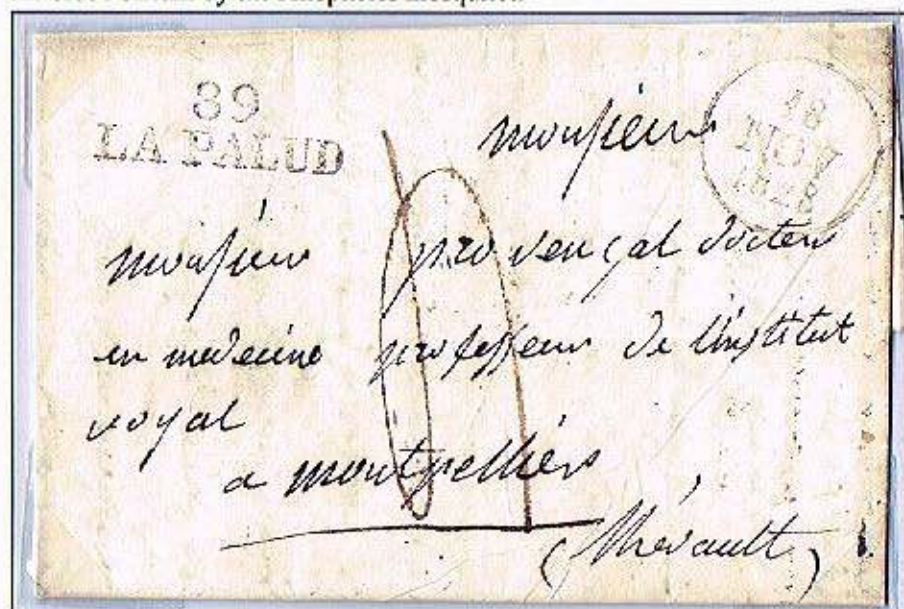 by the anopheles mosquito.
89
LA PALUD
18
NOV
1828
monsieur
monsieur provençal docteur
en medecine professeur de l'institut
royal
a montpelliers
(l'hérault)